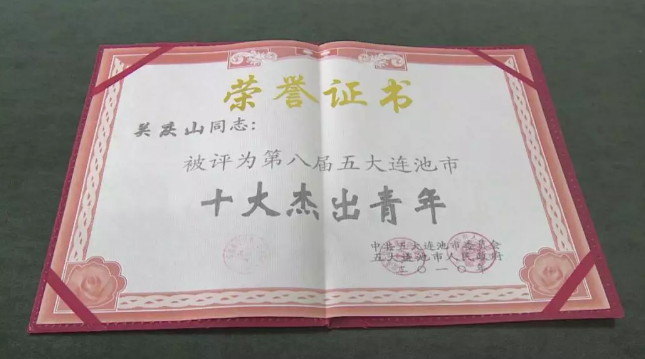 荣誉证书
关发山同志:
被评为第八届五大连池市
十大杰出青年
中共五大连池市委员会
五大连池市人民政府
二〇一〇年